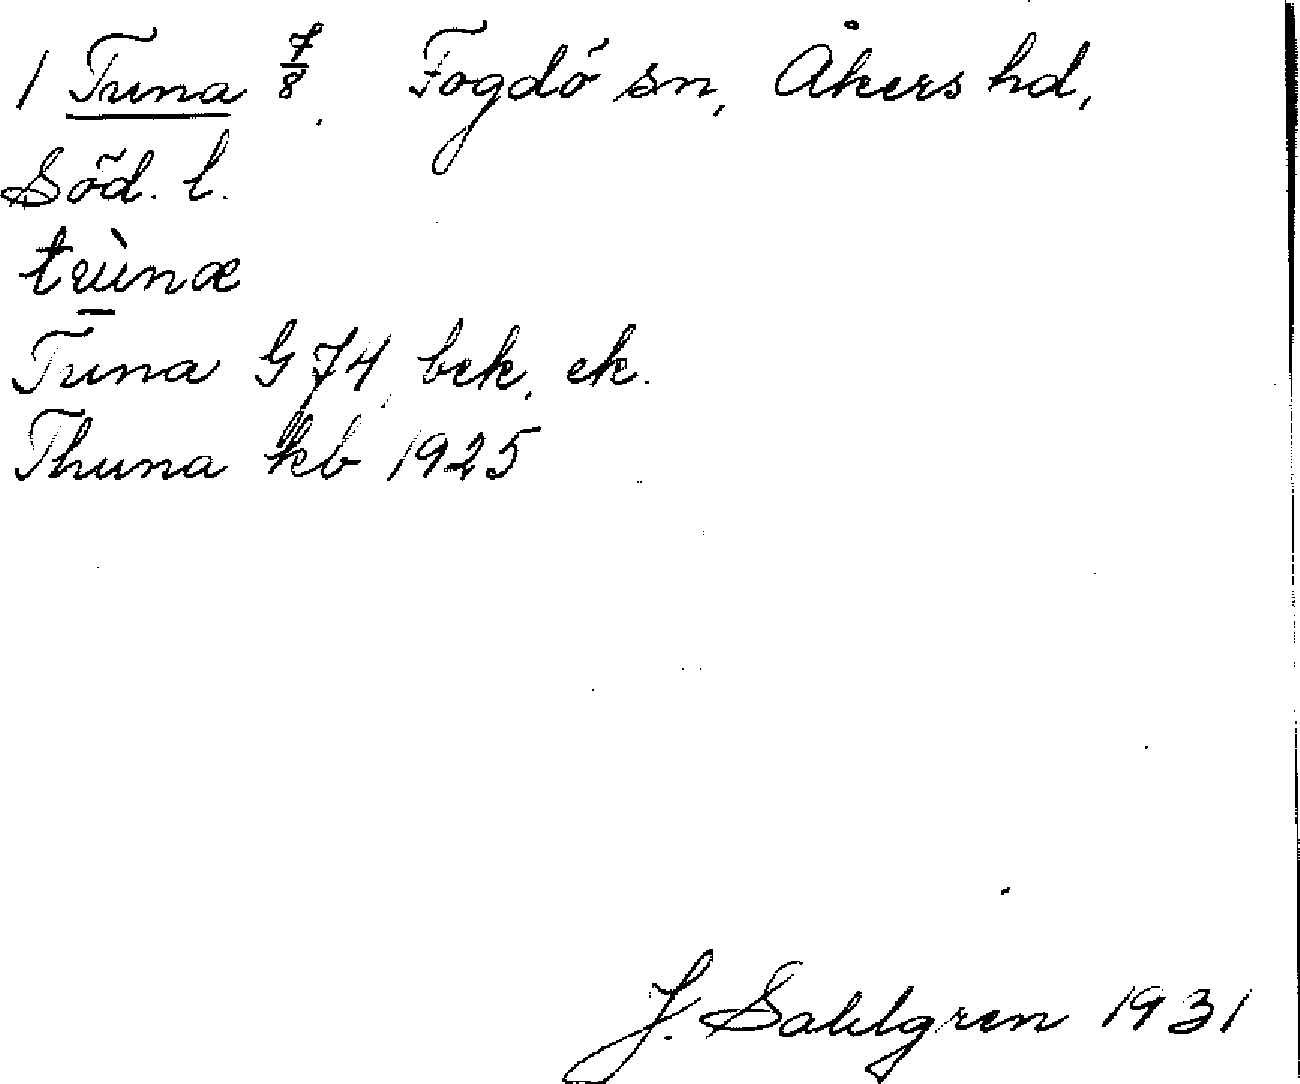 1 Tuna 7/8. Fogdö sn, Åkers hd,
Söd. l.
tùna
Tuna G 74, bek, ek.
Thuna kb 1925
J. Sahlgren 1931